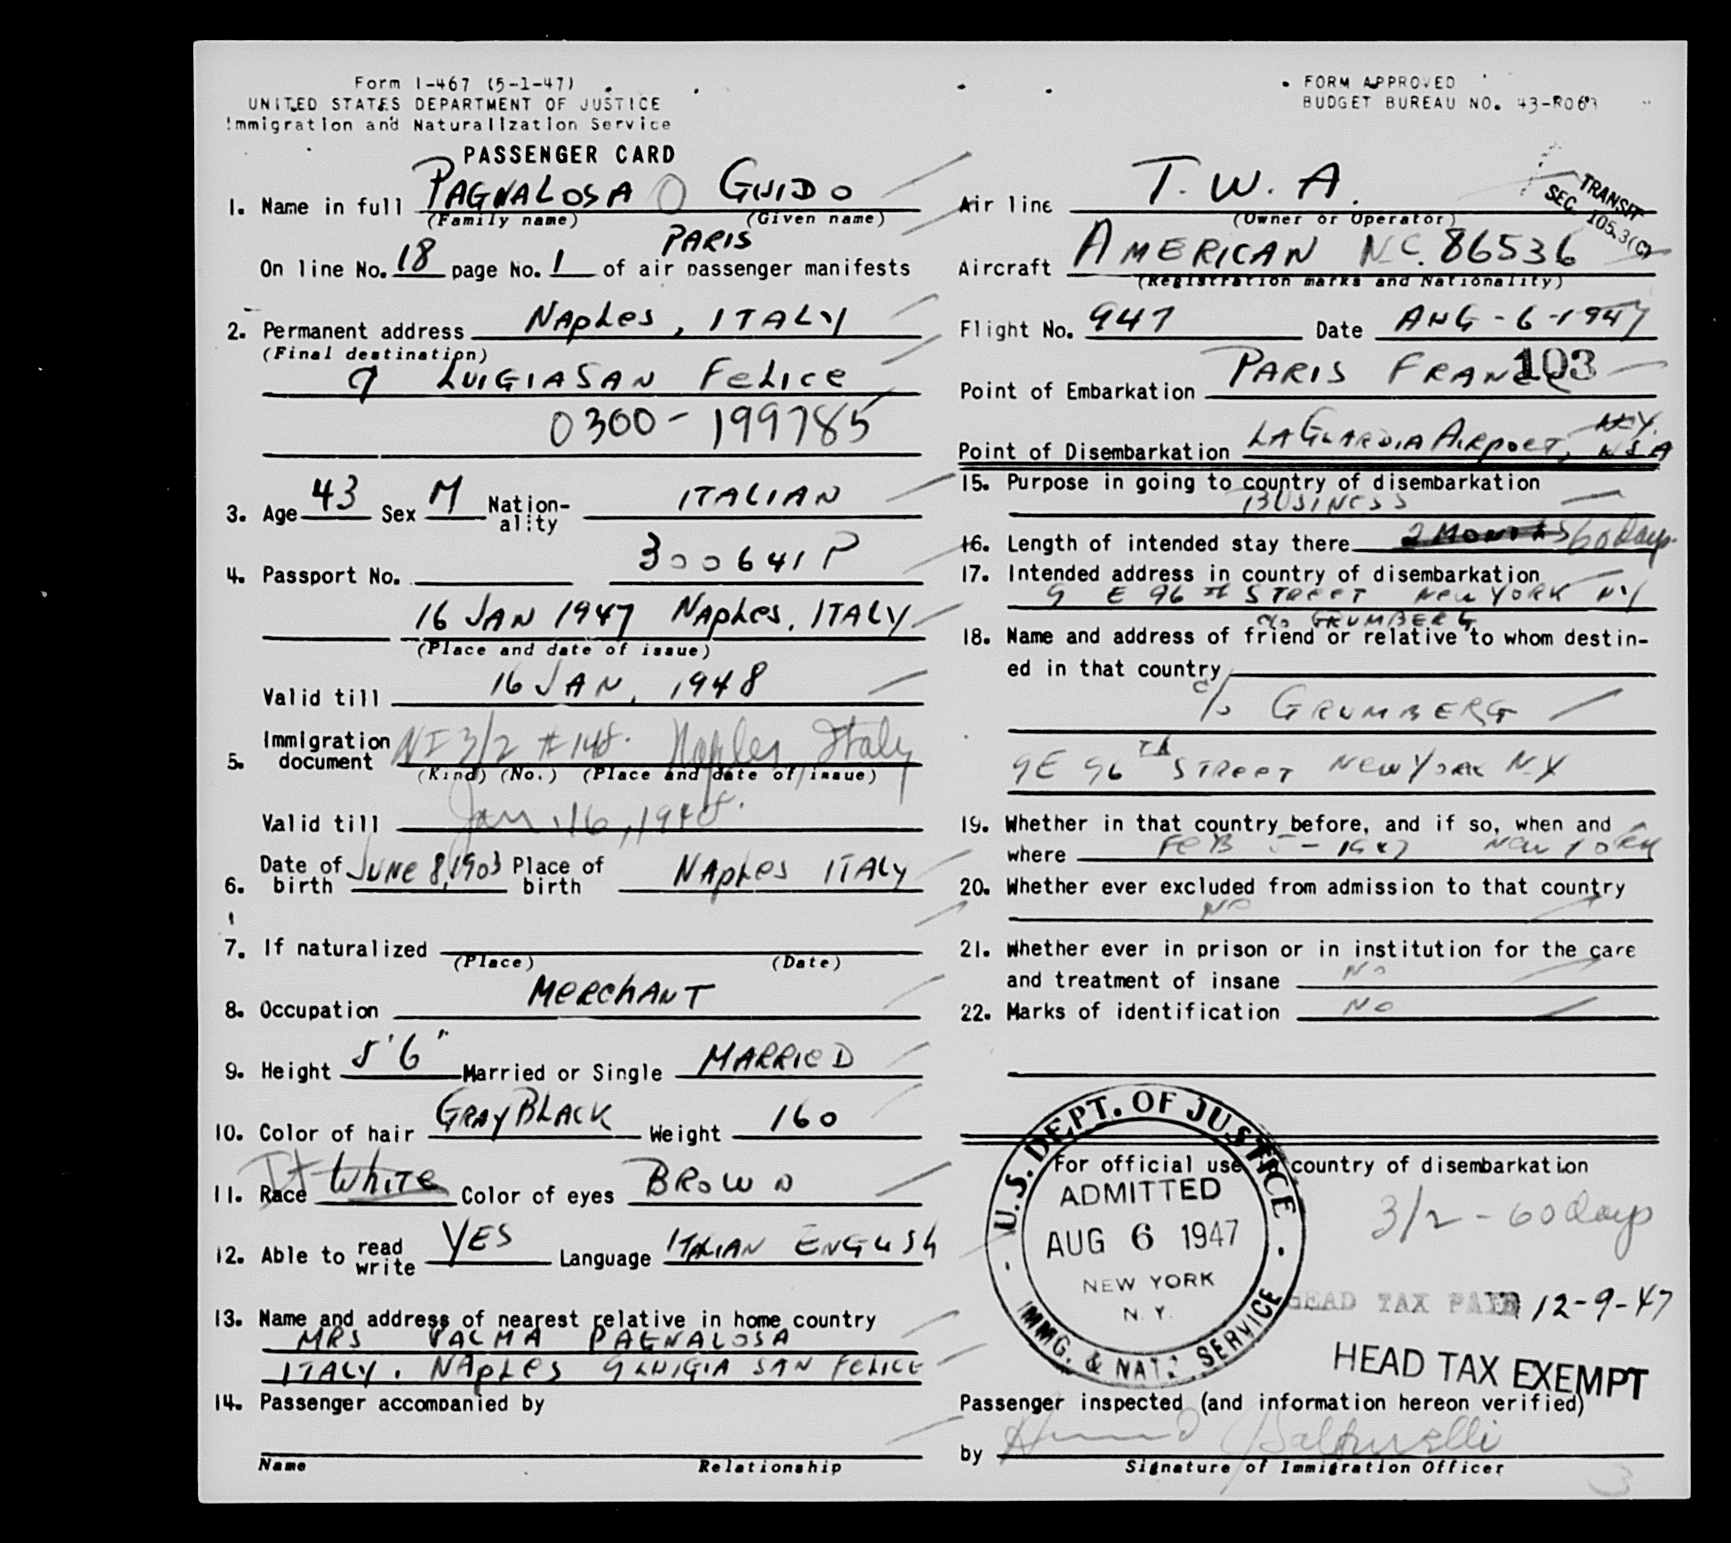 Form I-467 (5-1-47)
UNITED STATES DEPARTMENT OF JUSTICE
Immigration and Naturalization Service
PASSENGER CARD
1. Name in full PAGNALOSA GUIDO
(Family name) (Given name)
PARIS
On line No. 18 page No. 1 of air passenger manifests
2. Permanent address NAPLES, ITALY
(Final destination)
9 LUIGIASAN FELICE
0300-199785
3. Age 43 Sex M Nation-ality ITALIAN
4. Passport No. 300641P
16 JAN 1947 NAPLES, ITALY
(Place and date of issue)
Valid till 16 JAN, 1948
5. Immigration document NI 3/2 #148. Naples Italy
(Kind) (No.) (Place and date of issue)
Valid till Jan. 16, 1948.
6. Date of birth JUNE 8, 1903 Place of birth NAPLES ITALY
7. If naturalized
(Place) (Date)
8. Occupation MERCHANT
9. Height 5'6" Married or Single MARRIED
10. Color of hair GRAY BLACK Weight 160
11. Race It WHITE Color of eyes BROWN
12. Able to read write YES Language ITALIAN ENGLISH
13. Name and address of nearest relative in home country
MRS PAGNALOSA
ITALY. NAPLES 9 LUIGIA SAN FELICE
14. Passenger accompanied by
Name Relationship
FORM APPROVED
BUDGET BUREAU NO. 43-R063
TRANSIT
SEC. 105.3(C)
Air line T.W.A.
(Owner or Operator)
Aircraft AMERICAN NC. 86536
(Registration marks and Nationality)
Flight No. 947 Date AUG-6-1947
103
Point of Embarkation PARIS FRANCE
N.Y.
Point of Disembarkation LAGUARDIA AIRPORT, USA
15. Purpose in going to country of disembarkation
BUSINESS
16. Length of intended stay there 2 MONTHS 60 days.
17. Intended address in country of disembarkation
9 E 96 TH STREET NEW YORK NY
c/o GRUMBERG
18. Name and address of friend or relative to whom destin-
ed in that country
c/o GRUMBERG
9E 96TH STREET NEW YORK N.Y
19. Whether in that country before, and if so, when and
where FEB 5-1947 NEW YORK
20. Whether ever excluded from admission to that country
NO
21. Whether ever in prison or in institution for the care
and treatment of insane NO
22. Marks of identification NO
For official use country of disembarkation
U.S. DEPT. OF JUSTICE
ADMITTED
AUG 6 1947
NEW YORK
N.Y.
IMMG. & NAT. SERVICE
3/2-60 days
HEAD TAX PAID 12-9-47
HEAD TAX EXEMPT
Passenger inspected (and information hereon verified)
by
Signature of Immigration Officer
3